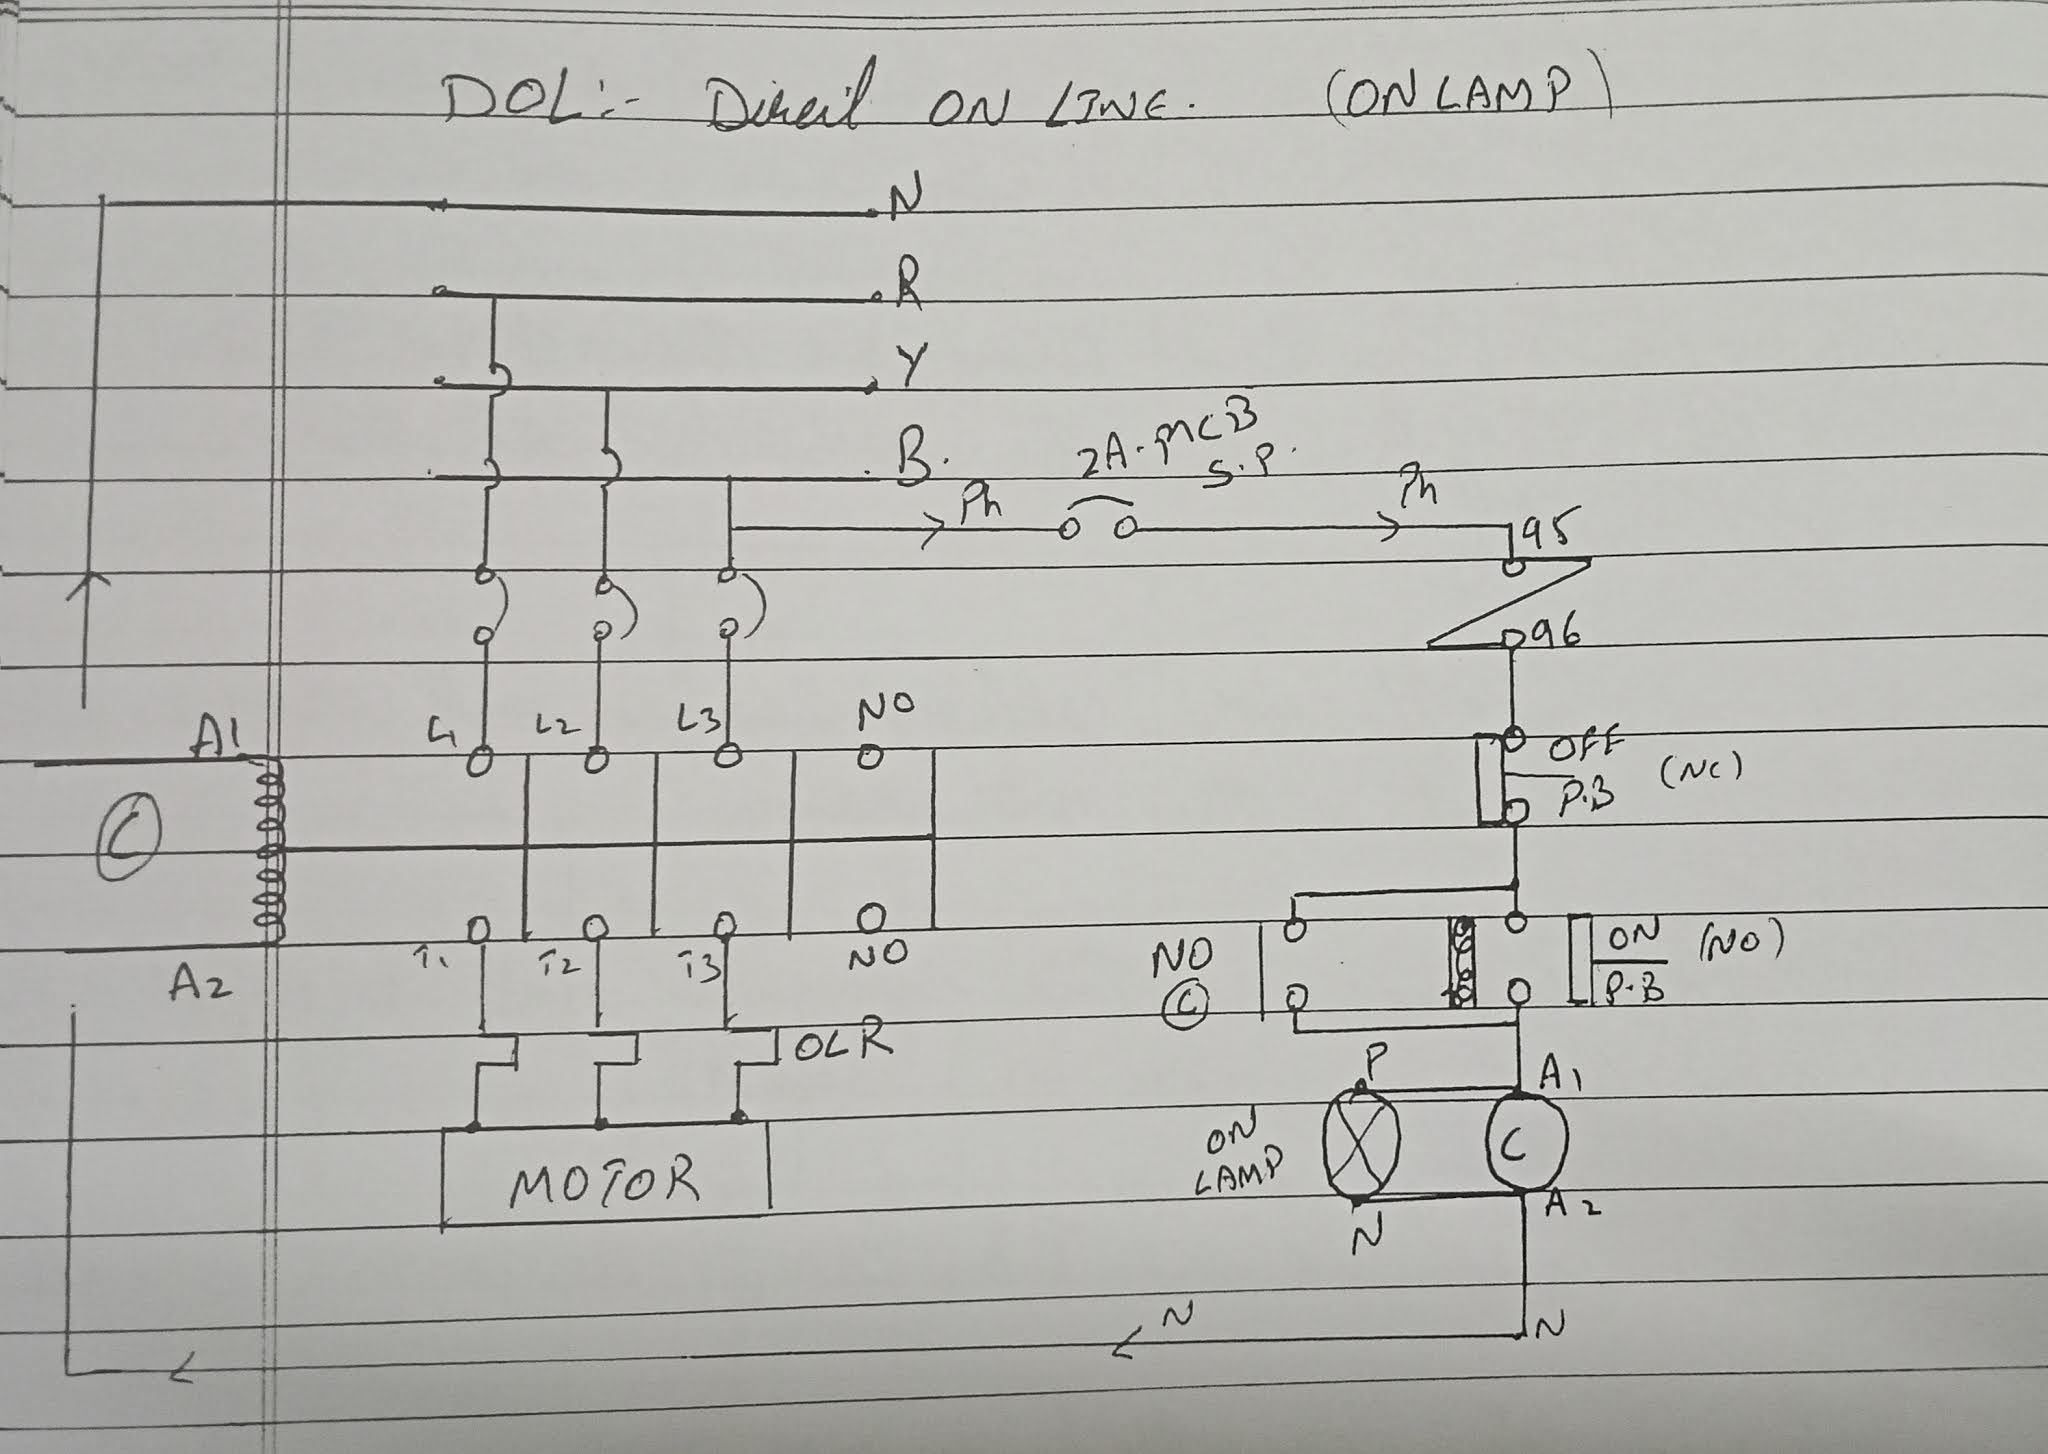 DOL:- Direct ON LINE. (ON LAMP)
N
R
Y
B.
2A.MCB
S.P.
Ph
Ph
95
96
A1
L1
L2
L3
NO
OFF
P.B
(NC)
C
A2
T1
T2
T3
NO
NO
C
ON
P.B
(NO)
OLR
P
A1
ON
LAMP
C
MOTOR
N
A2
N
N